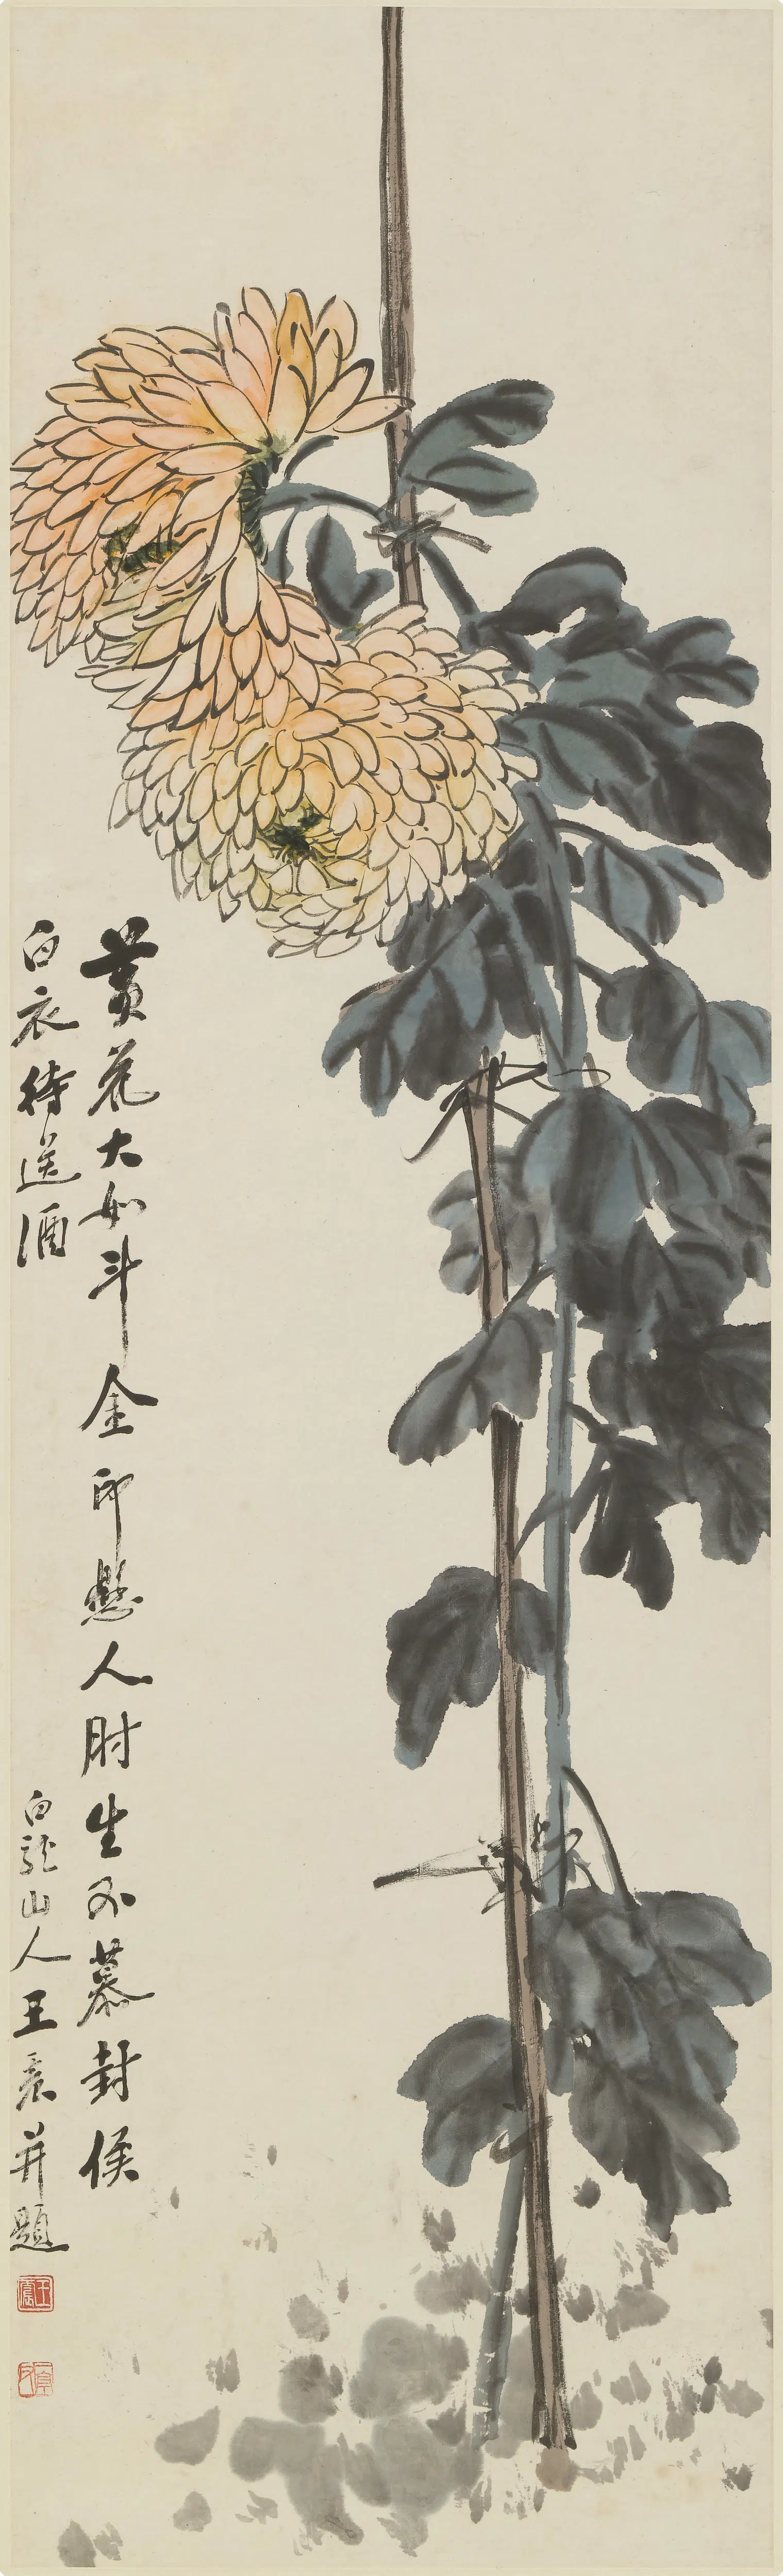 黃花大如斗金印懸人肘生不慕封侯
白衣待送酒
白龍山人王震并題
王震